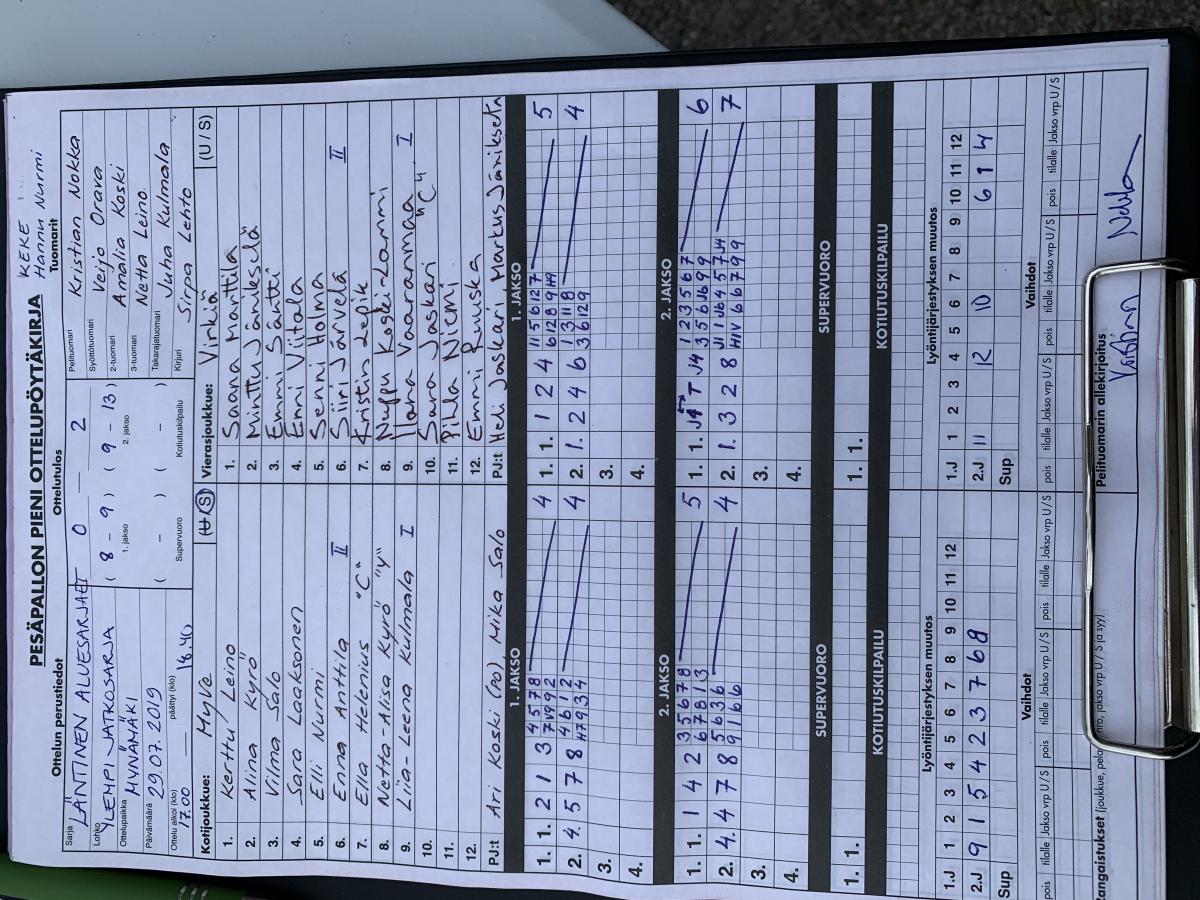 PESÄPALLON PIENI OTTELUPÖYTÄKIRJA
KEKE
Hannu Nurmi
Ottelun perustiedot
Sarja LÄNTINEN ALUESARJAT
Lohko YLEMPI JATKOSARJA
Ottelupaikka MYNÄMÄKI
Päivämäärä 29.07.2019
Ottelu alkoi (klo) 17.00 päättyi (klo) 18.40
Ottelutulos
0 — 2
( 8 – 9 ) ( 9 – 13 )
1. jakso 2. jakso
( – ) ( – )
Supervuoro Kotiutuskilpailu
Tuomarit
Pelituomari Kristian Nokka
Syöttötuomari Veijo Orava
2-tuomari Amalia Koski
3-tuomari Netta Leino
Takarajatuomari Juha Kulmala
Kirjuri Sirpa Lehto
Kotijoukkue: MyVe (U/S)
1. Kerttu Leino
2. Aiina Kyrö
3. Vilma Salo
4. Sara Laaksonen
5. Elli Nurmi
6. Enna Anttila II
7. Ella Helenius "C"
8. Netta-Alisa Kyrö "Y"
9. Liia-Leena Kulmala I
10.
11.
12.
PJ:t Ari Koski (no), Mika Salo
Vierasjoukkue: Virkiä (U / S)
1. Saana Marttila
2. Minttu Jänikselä
3. Emmi Säntti
4. Enni Viitala
5. Senni Holma
6. Siiri Järvelä II
7. Kristin Lepik
8. Nuppu Koski-Lammi
9. Ilana Vaaranmaa I
10. Sara Jaskari "C"
11. Pihla Niemi
12. Emmi Ruuska
PJ:t Heli Jaskari Markus Jänikselä
1. JAKSO
1. 1. 2 1 3 4 5 7 8 4
2. 4. 5 7 8 4 6 1 2 4
3.
4.
1. JAKSO
1. 1. 1 2 4 11 5 6 12 7 5
2. 1. 2 4 6 1 3 11 8 4
3 6 12 9
3.
4.
2. JAKSO
1. 1. 1 4 2 3 5 6 7 8 5
6 7 8 1 3
2. 4. 4 7 8 5 6 3 6 4
9 1 6 6
3.
4.
2. JAKSO
1. 1. J4 T J4 1 2 3 5 6 7 6
3 5 6 J6 9 9
2. 1. 3 2 8 J1 1 J6 4 5 7 J4 7
3.
4.
SUPERVUORO
1. 1.
SUPERVUORO
1. 1.
KOTIUTUSKILPAILU
KOTIUTUSKILPAILU
Lyöntijärjestyksen muutos
1.J 1 2 3 4 5 6 7 8 9 10 11 12
2.J 9 1 5 4 2 3 7 6 8
Sup
Lyöntijärjestyksen muutos
1.J 1 2 3 4 5 6 7 8 9 10 11 12
2.J 11 12 10 6 1 4
Sup
Vaihdot
pois tilalle Jakso vrp U / S pois tilalle Jakso vrp U / S pois tilalle Jakso vrp U / S
Vaihdot
pois tilalle Jakso vrp U / S pois tilalle Jakso vrp U / S pois tilalle Jakso vrp U / S
Pelituomarin allekirjoitus